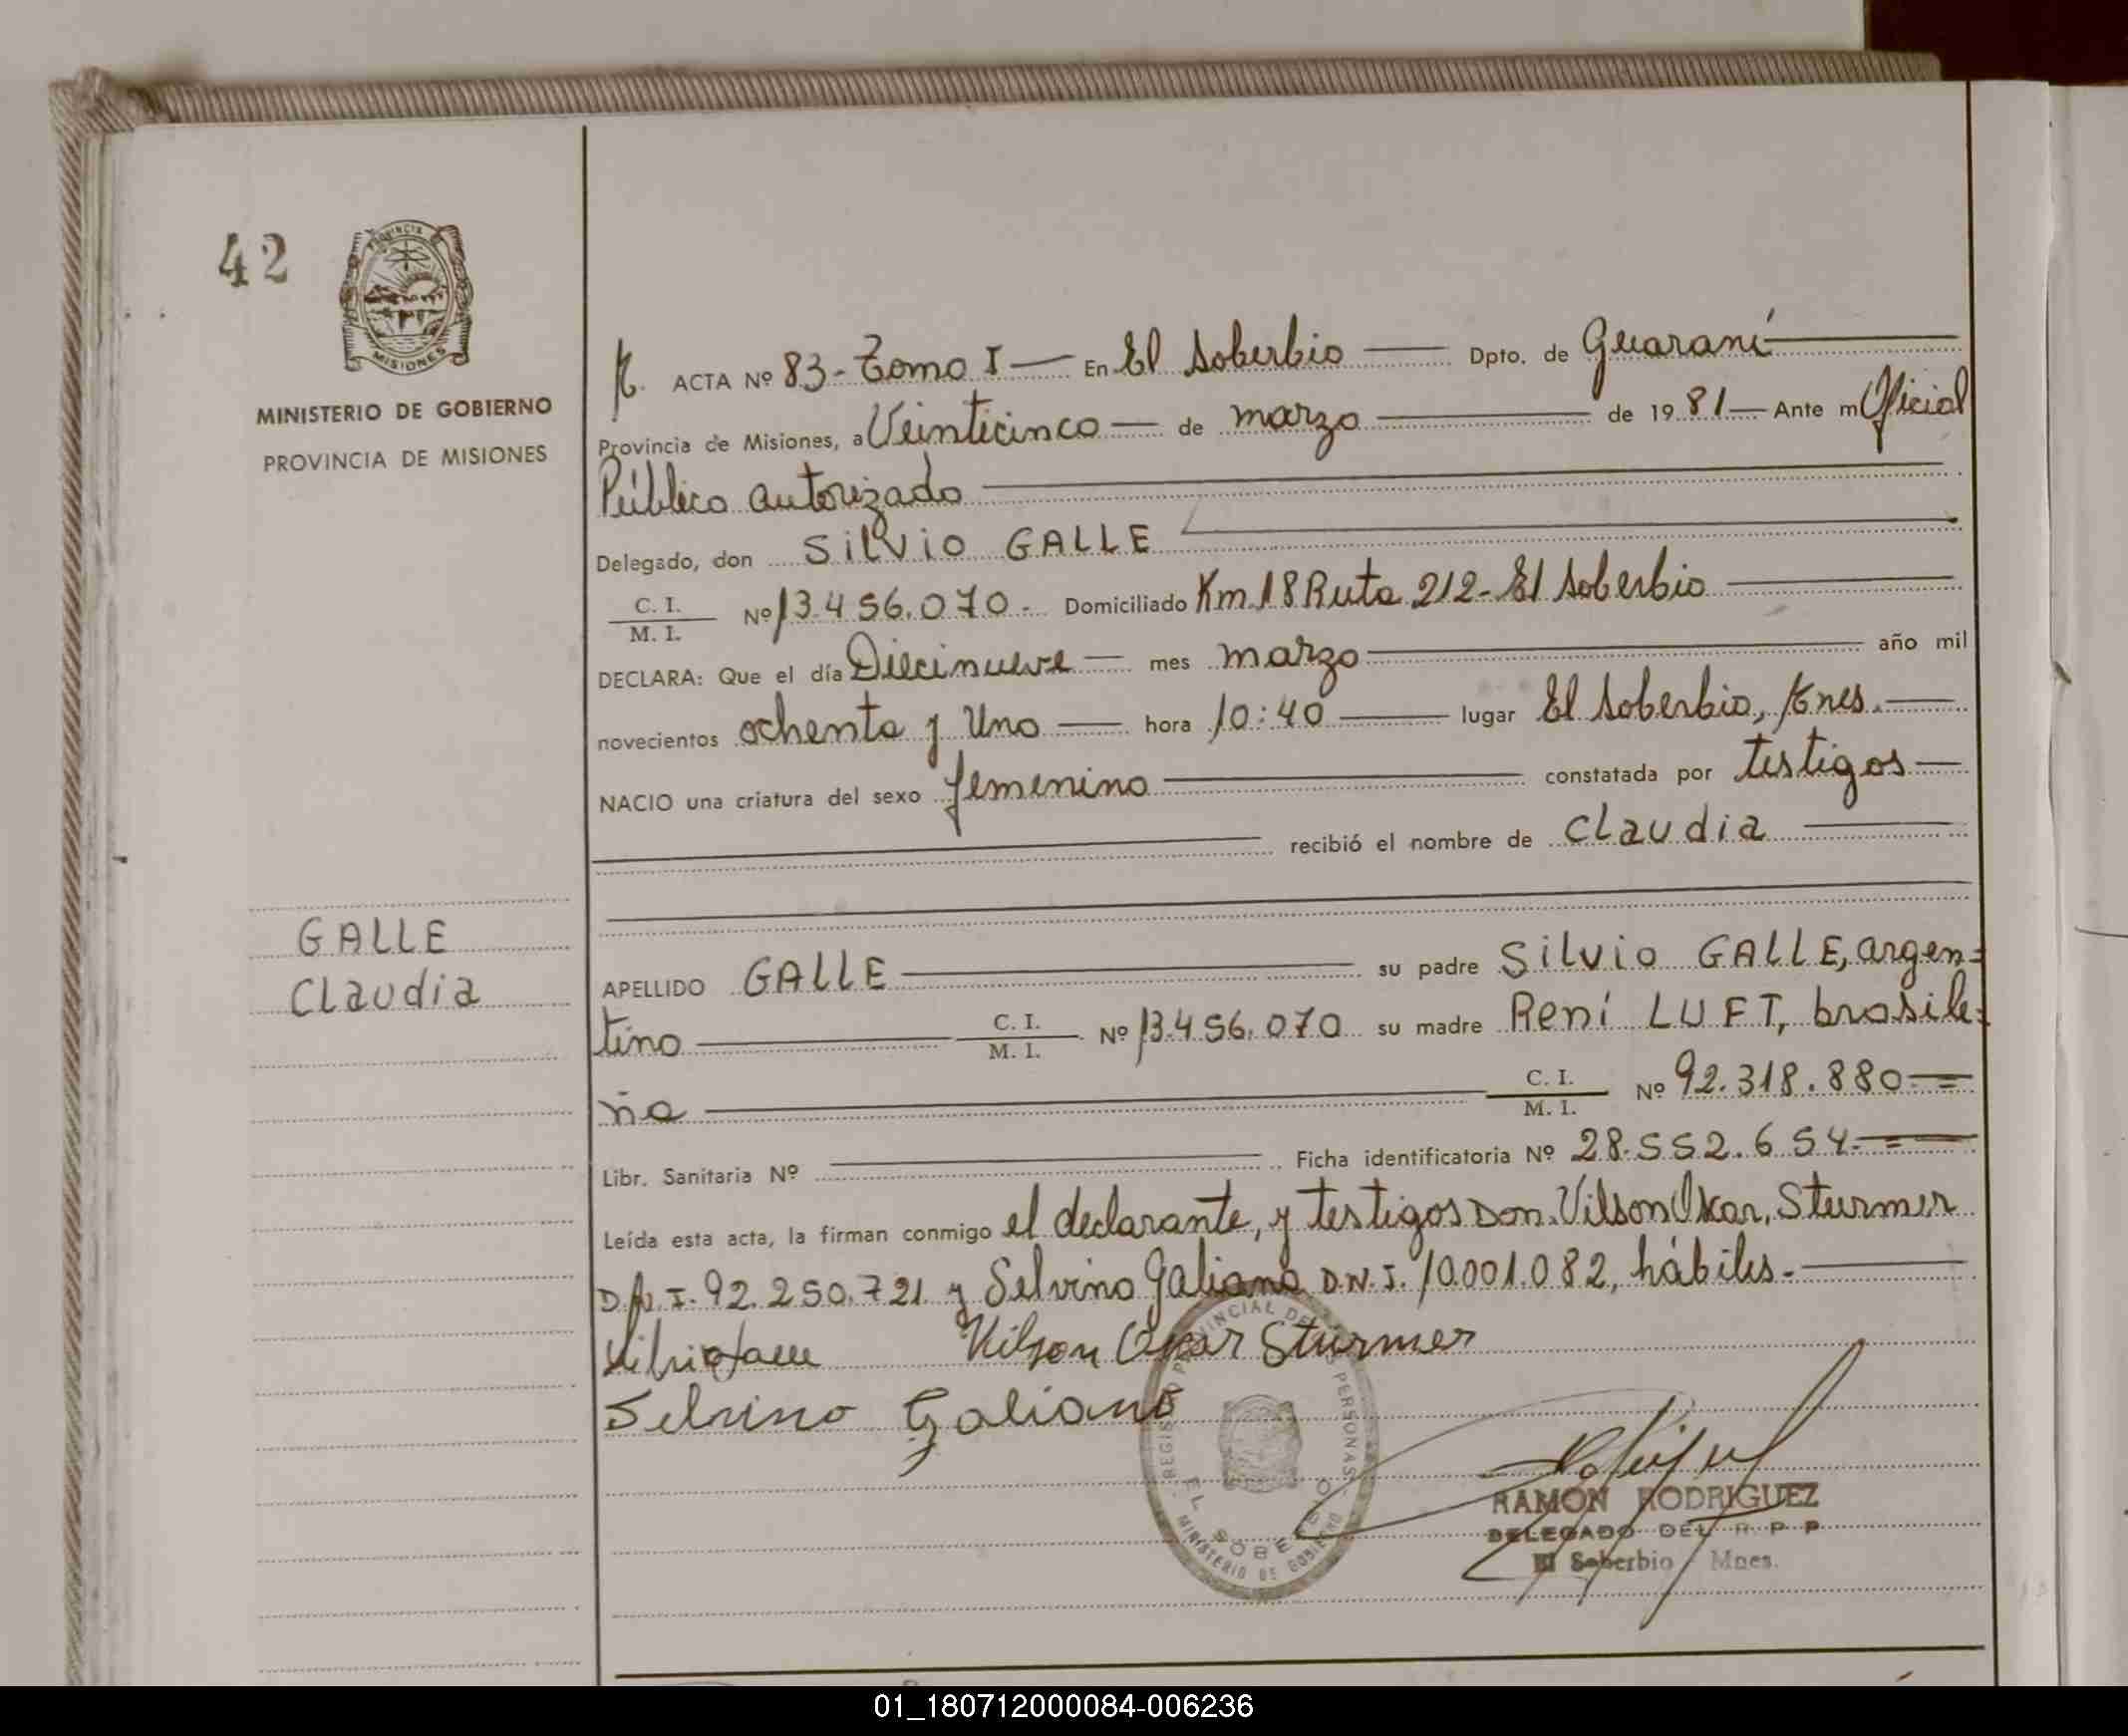 42
PROVINCIA
MISIONES
MINISTERIO DE GOBIERNO
PROVINCIA DE MISIONES
GALLE
Claudia
ACTA Nº 83 - Tomo I — En El Soberbio — Dpto. de Guaraní
Provincia de Misiones, a Veinticinco — de marzo — de 19 81 — Ante m Oficial
Público autorizado
Delegado, don Silvio GALLE
C. I. / M. I. Nº 13.456.070 - Domiciliado Km 18 Ruta 212 - El Soberbio
DECLARA: Que el día Diecinueve — mes marzo — año mil
novecientos ochenta y Uno — hora 10:40 — lugar El Soberbio, Mnes. —
NACIO una criatura del sexo femenino — constatada por testigos —
recibió el nombre de Claudia —
APELLIDO GALLE — su padre Silvio GALLE, argen=
tino — C. I. / M. I. Nº 13.456.070 su madre Rení LUFT, brasile=
ña — C. I. / M. I. Nº 92.318.880 =
Libr. Sanitaria Nº — Ficha identificatoria Nº 28.552.654 =
Leída esta acta, la firman conmigo el declarante, y testigos Don. Vilson Oskar, Sturmer
D.N.I. 92.250.721 y Selvino Galiano D.N.I. 10.001.082, hábiles. —
Vilson Oskar Sturmer
Selvino Galiano
REGISTRO PROVINCIAL DE LAS PERSONAS
EL SOBERBIO
MINISTERIO DE GOBIERNO
RAMON RODRIGUEZ
DELEGADO DEL R P P
El Soberbio - Mnes.
01_180712000084-006236